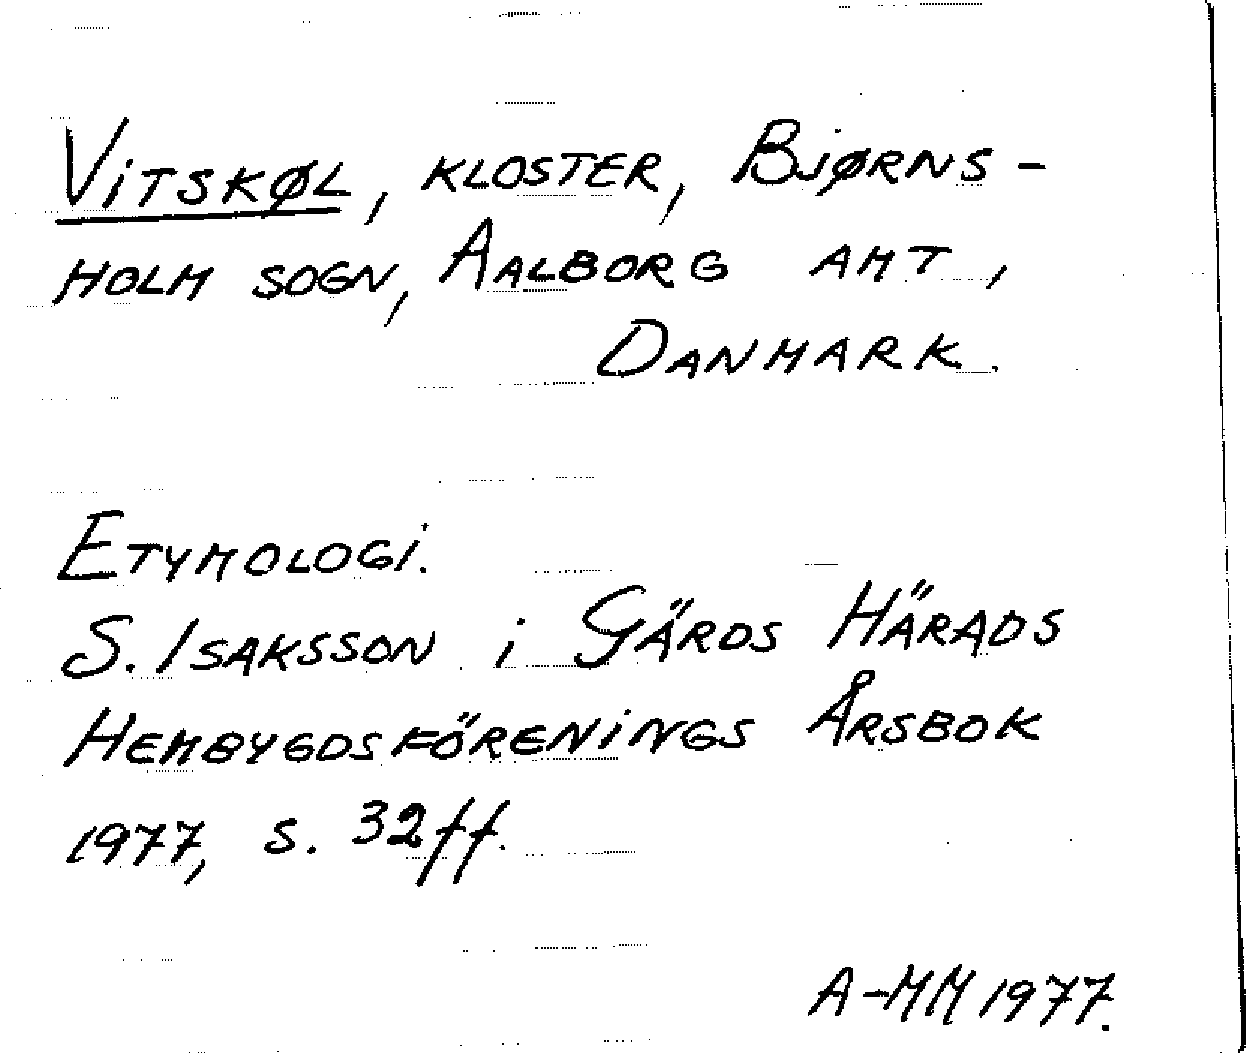 Vitskøl, kloster, Bjørns-
holm sogn, Aalborg amt,
Danmark.
Etymologi.
S. Isaksson i Gärds Härads
Hembygdsförenings Årsbok
1977, s. 32ff.
A-MM 1977.